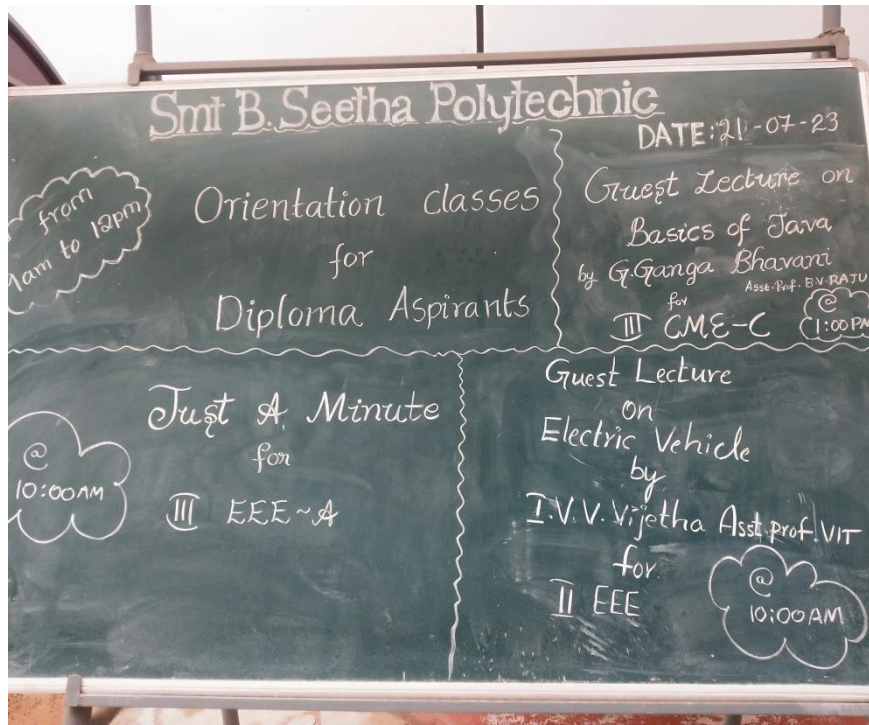 Smt B. Seetha Polytechnic
DATE: 21-07-23
from
to 12pm
Orientation classes
for
Diploma Aspirants
Guest Lecture on
Basics of Java
by G. Ganga Bhavani
Asst. Prof. B.V. RAJU
for
III CME-C
@
1:00PM
Just A Minute
for
III EEE~A
@
10:00AM
Guest Lecture
on
Electric Vehicle
by
I.V.V. Vijetha Asst. prof. VIT
for
II EEE
@
10:00AM